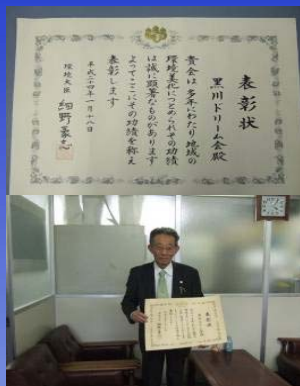 表彰状
黒川ドリーム会殿
貴会は、多年にわたり地域の
環境美化につとめられその功績
は誠に顕著なものがあります
よってここにその功績を称え
表彰します
平成二十四年一月十八日
環境大臣 細野豪志
表彰状